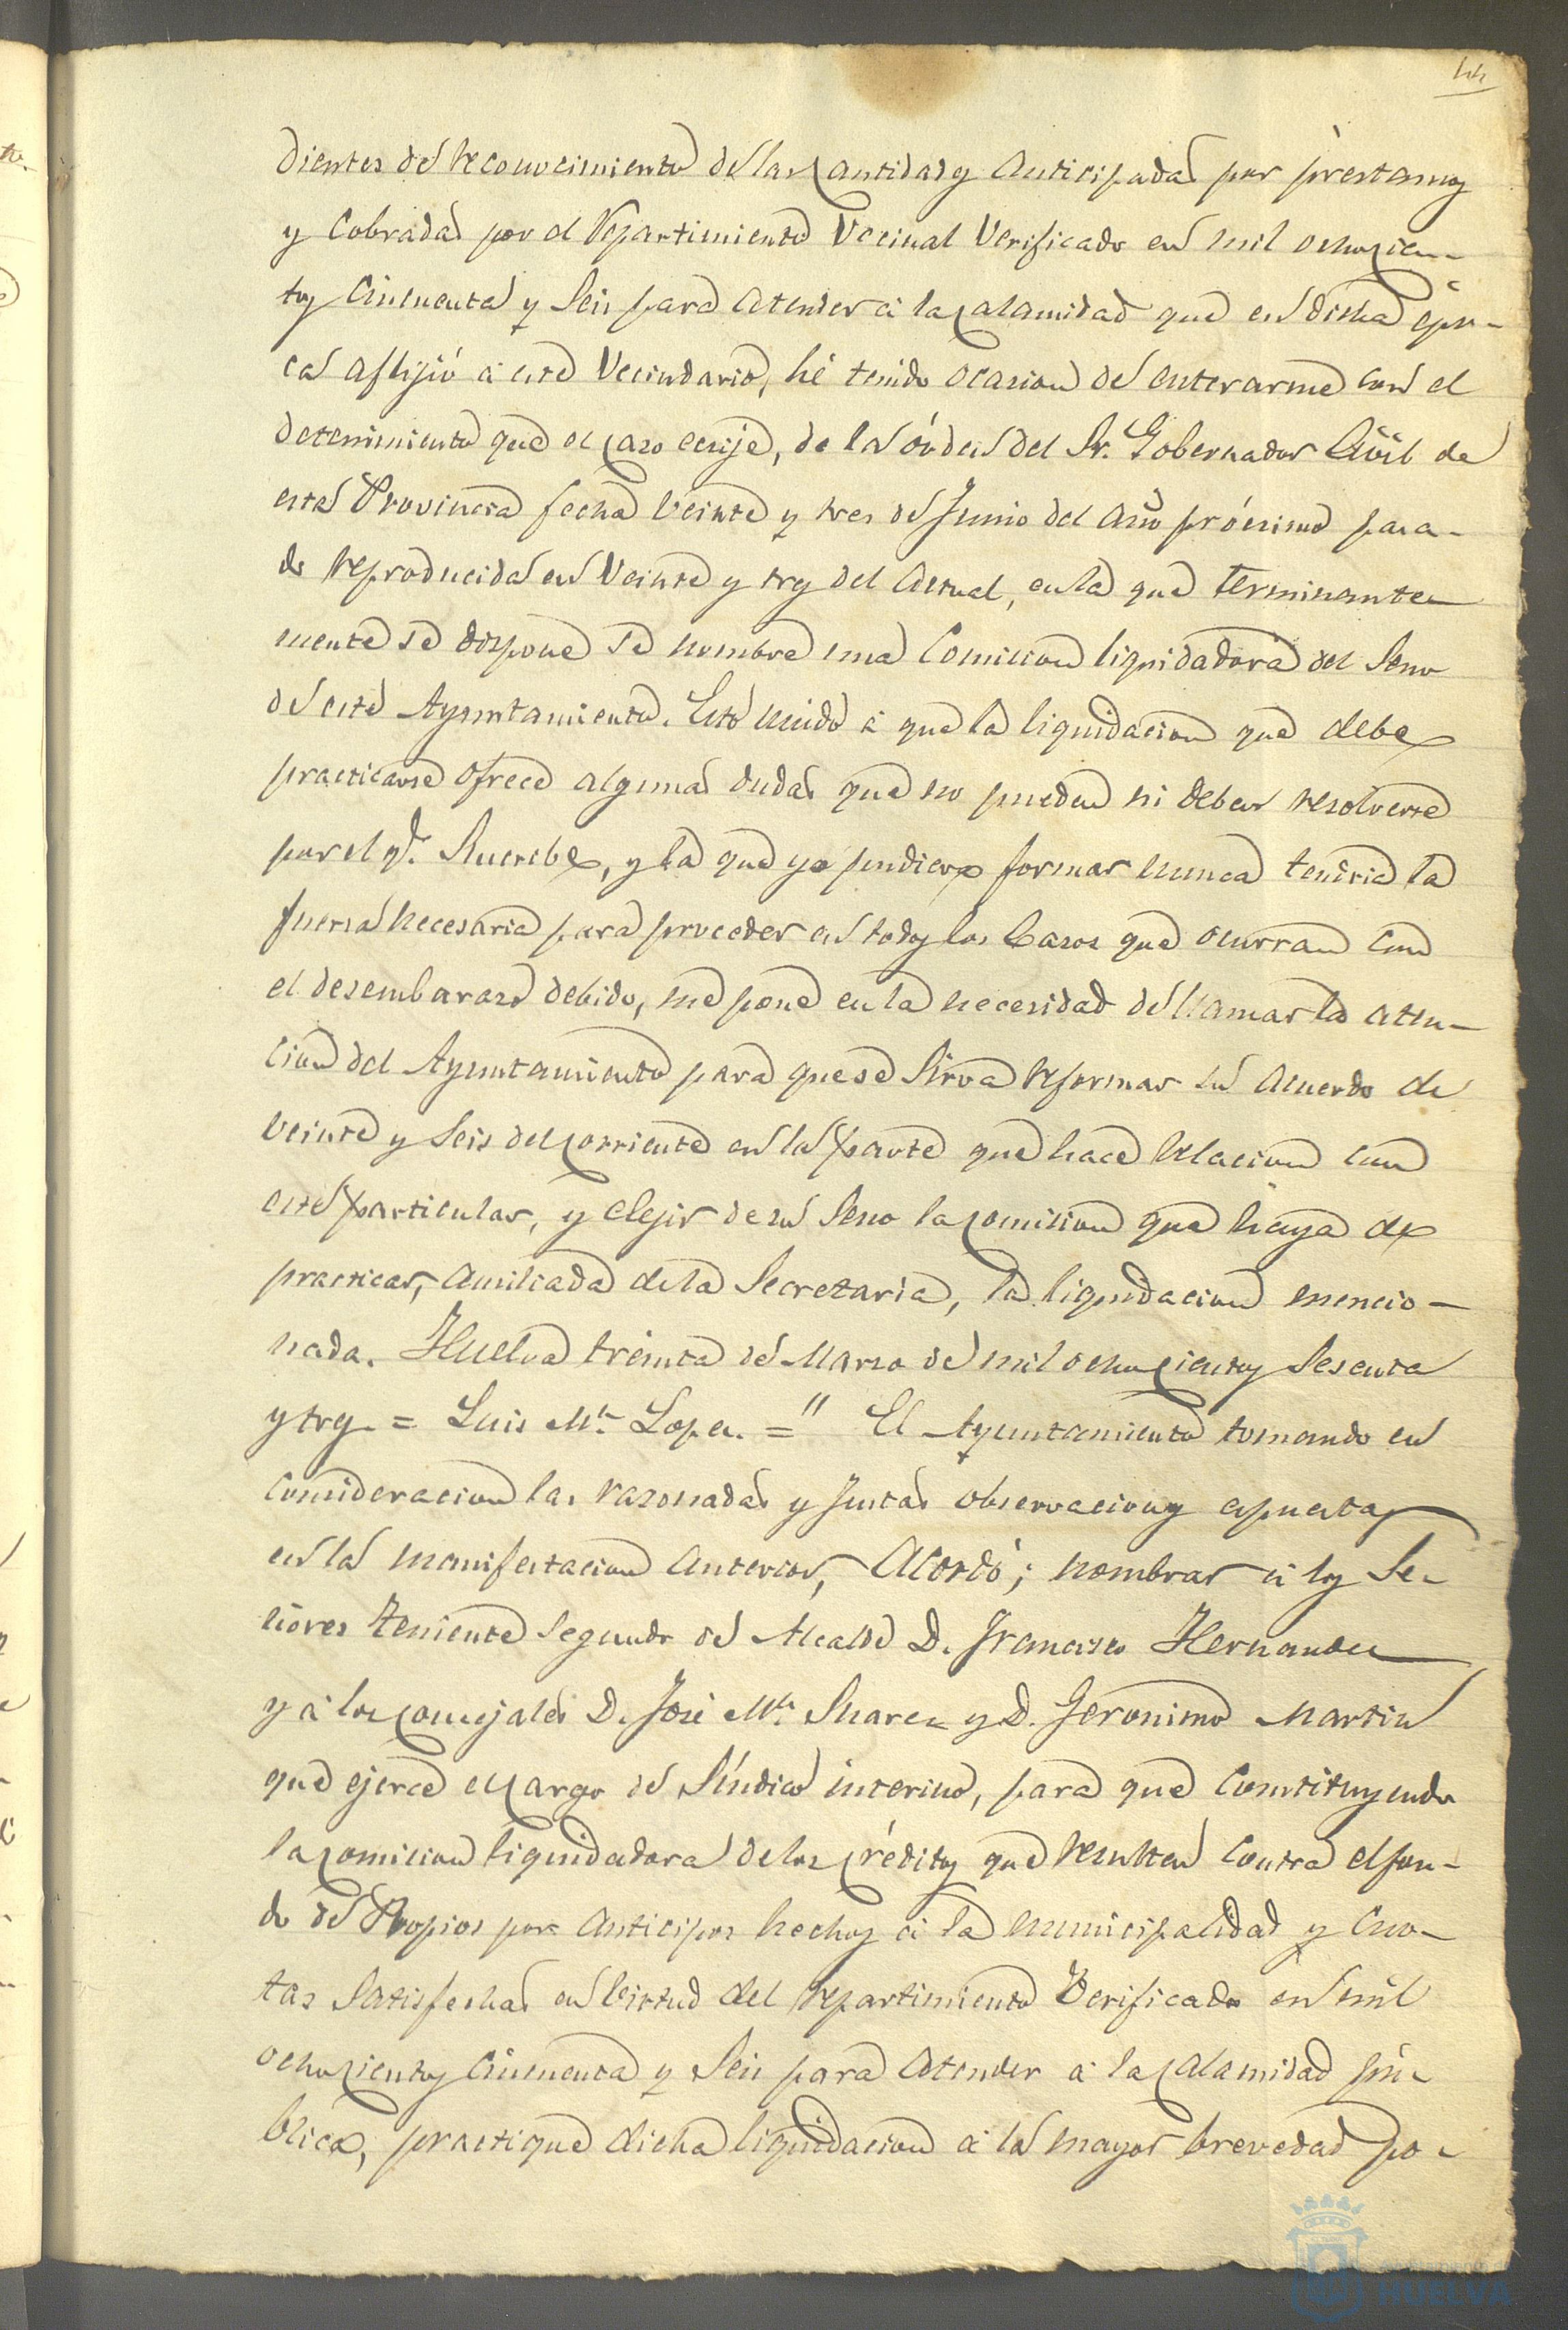 44
dientes de reconocimiento de las cantidades anticipadas por prestamos
y cobradas por el repartimiento vecinal verificado en mil ochocien-
tos cincuenta y seis para atender á la calamidad que en dicha épo-
ca aflijió á este vecindario, hé tenido ocasion de enterarme con el
detenimiento que el caso ecsije, de la órden del Sr. Gobernador Civil de
esta Provincia fecha veinte y tres de Junio del año prócsimo pasa-
do reproducida en veinte y tres del actual, en la que terminante-
mente se dispone se nombre una Comision liquidadora del seno
de este Ayuntamiento. Esto unido á que la liquidacion que debe
practicarse ofrece algunas dudas que no pueden ni deben resolverse
por el qe. suscribe, y la que yo pudiera formar nunca tendria la
fuerza necesaria para proceder en todos los casos que ocurran con
el desembarazo debido, me pone en la necesidad de llamar la aten-
cion del Ayuntamiento para que se sirva reformar su acuerdo de
veinte y seis del corriente en la parte que hace relacion con
este particular, y elejir de su seno la comision que haya de
practicar, ausiliada de la Secretaria, la liquidacion mencio-
nada. Huelva treinta de Marzo de mil ochocientos sesenta
y tres. = Luis Ma. Lopez. =" El Ayuntamiento tomando en
consideracion las razonadas y justas observaciones espuestas
en la manifestacion anterior, Acordó; nombrar á los Se-
ñores teniente segundo de Alcalde D. Francisco Hernandez
y á los concejales D. José Ma. Suarez y D. Jeronimo Martin
que ejerce el cargo de Síndico interino, para que constituyendo
la comision liquidadora de los créditos que resulten contra el fon-
do de Propios por anticipos hechos á la municipalidad y cuo-
tas satisfechas en virtud del repartimiento verificado en mil
ochocientos cincuenta y seis para atender á la calamidad pú-
blica, practique dicha liquidacion á la mayor brevedad po-
HUELVA